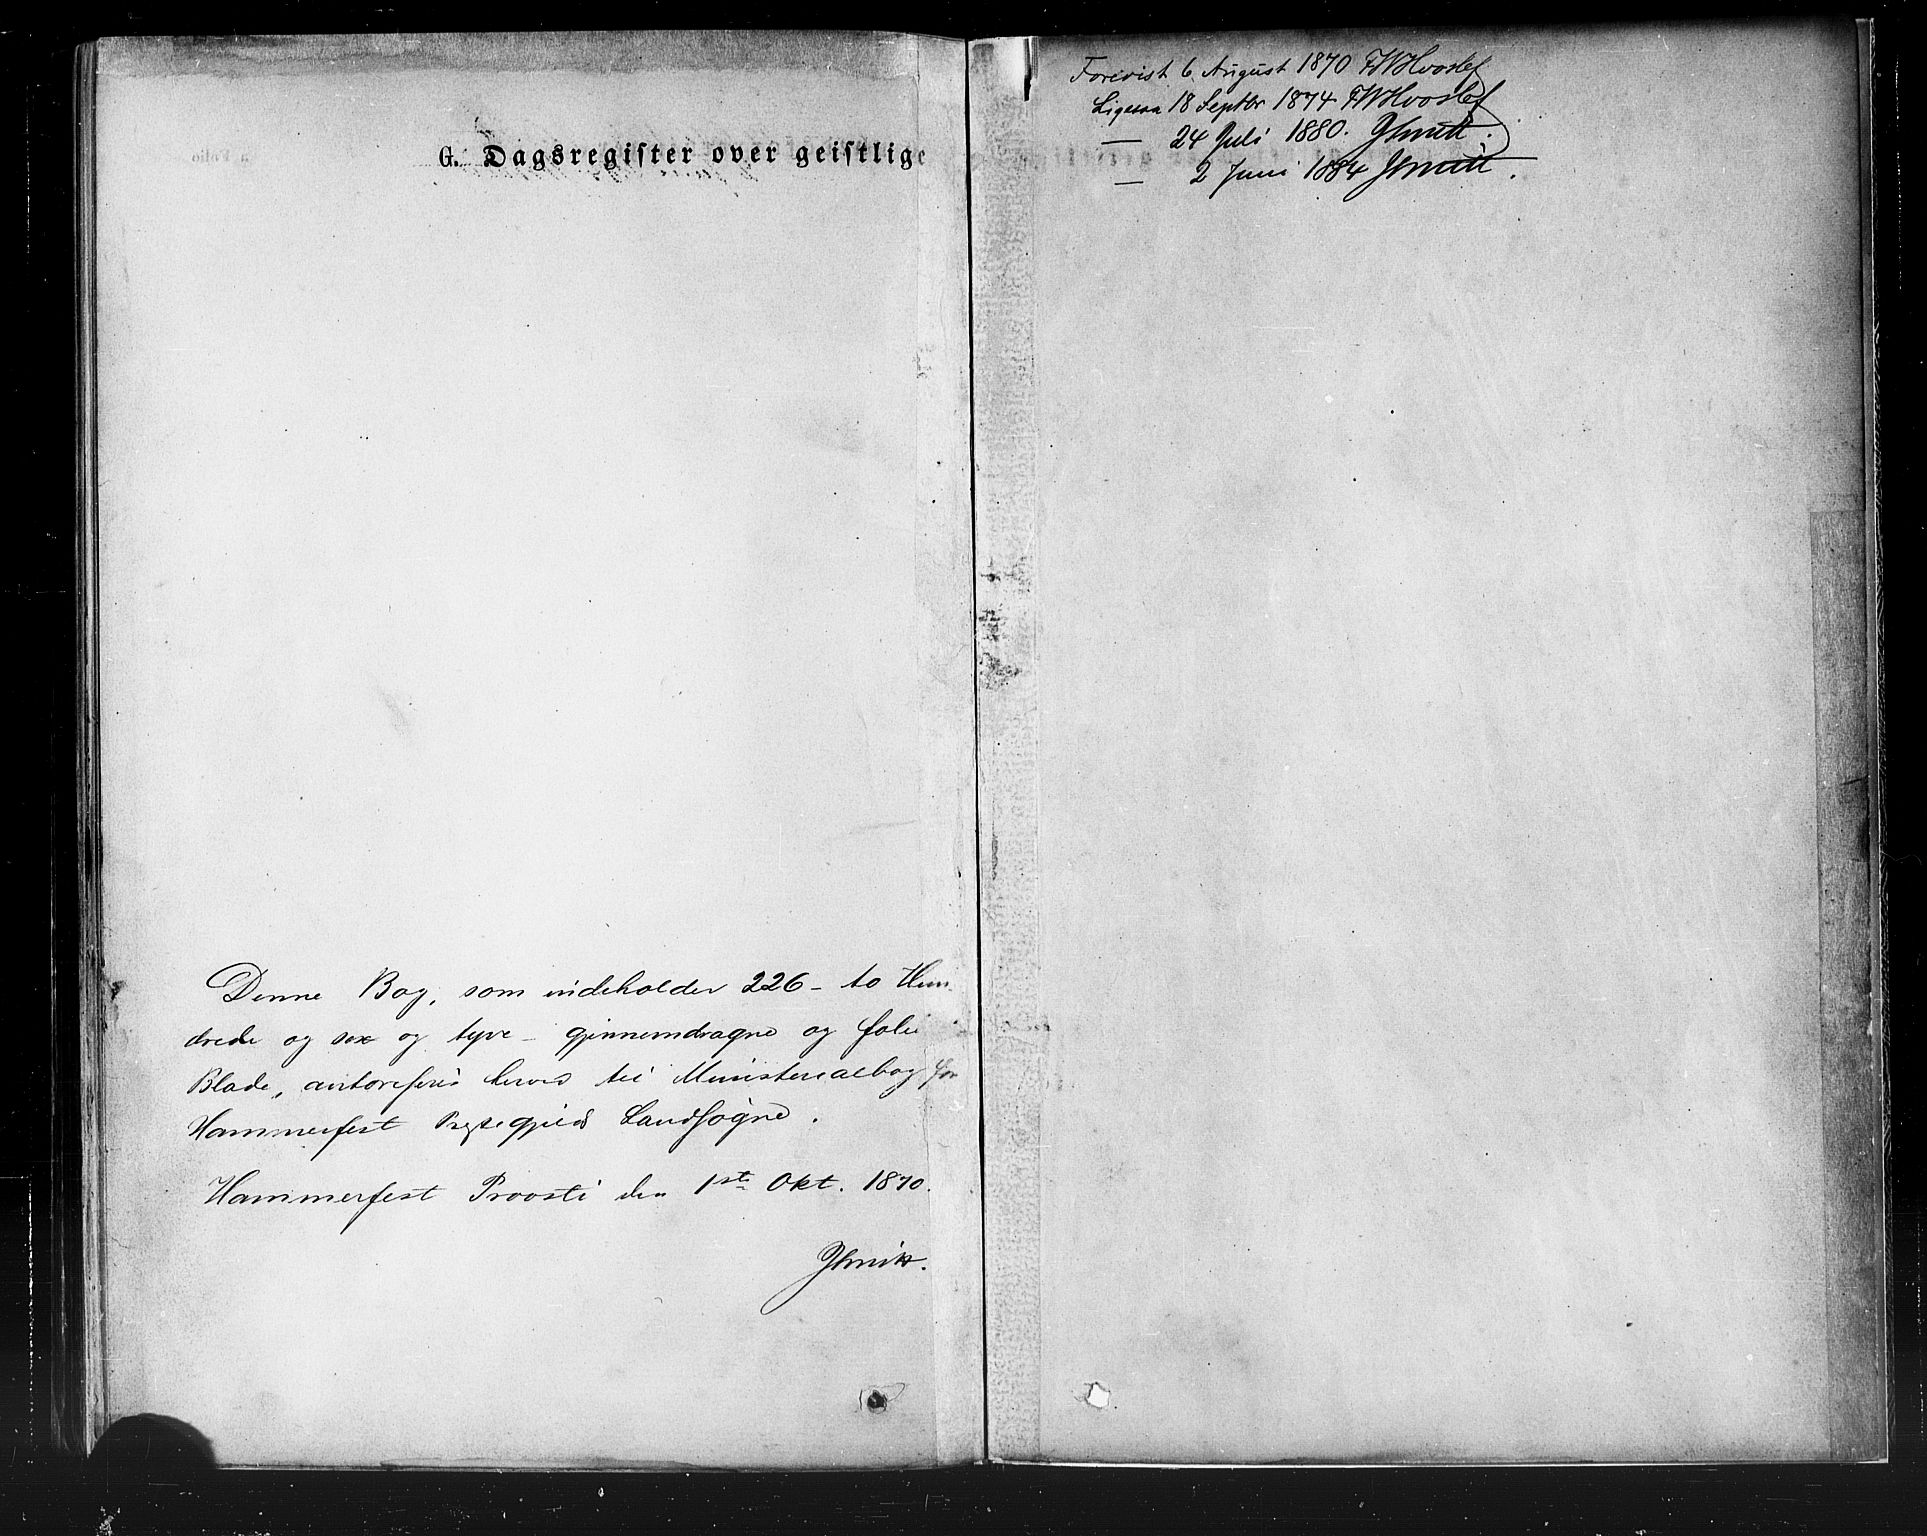 G. Dagsregister over geistlige
Denne Bog, som indeholder 226 - to Hun-
drede og sex og tyve - gjennemdragne og folie
Blade, autoriseres herved til Ministerialbog for
Hammerfest Præstegjelds Landsogne.
Hammerfest Provsti den 1ste Okt. 1870.
JSmitt.
Forevist 6 August 1870 FWHvoslef
Ligesaa 18 Septbr 1874 FWHvoslef
— 24 Juli 1880. JSmitt.
— 2 Juni 1884 JSmitt.
a Folio